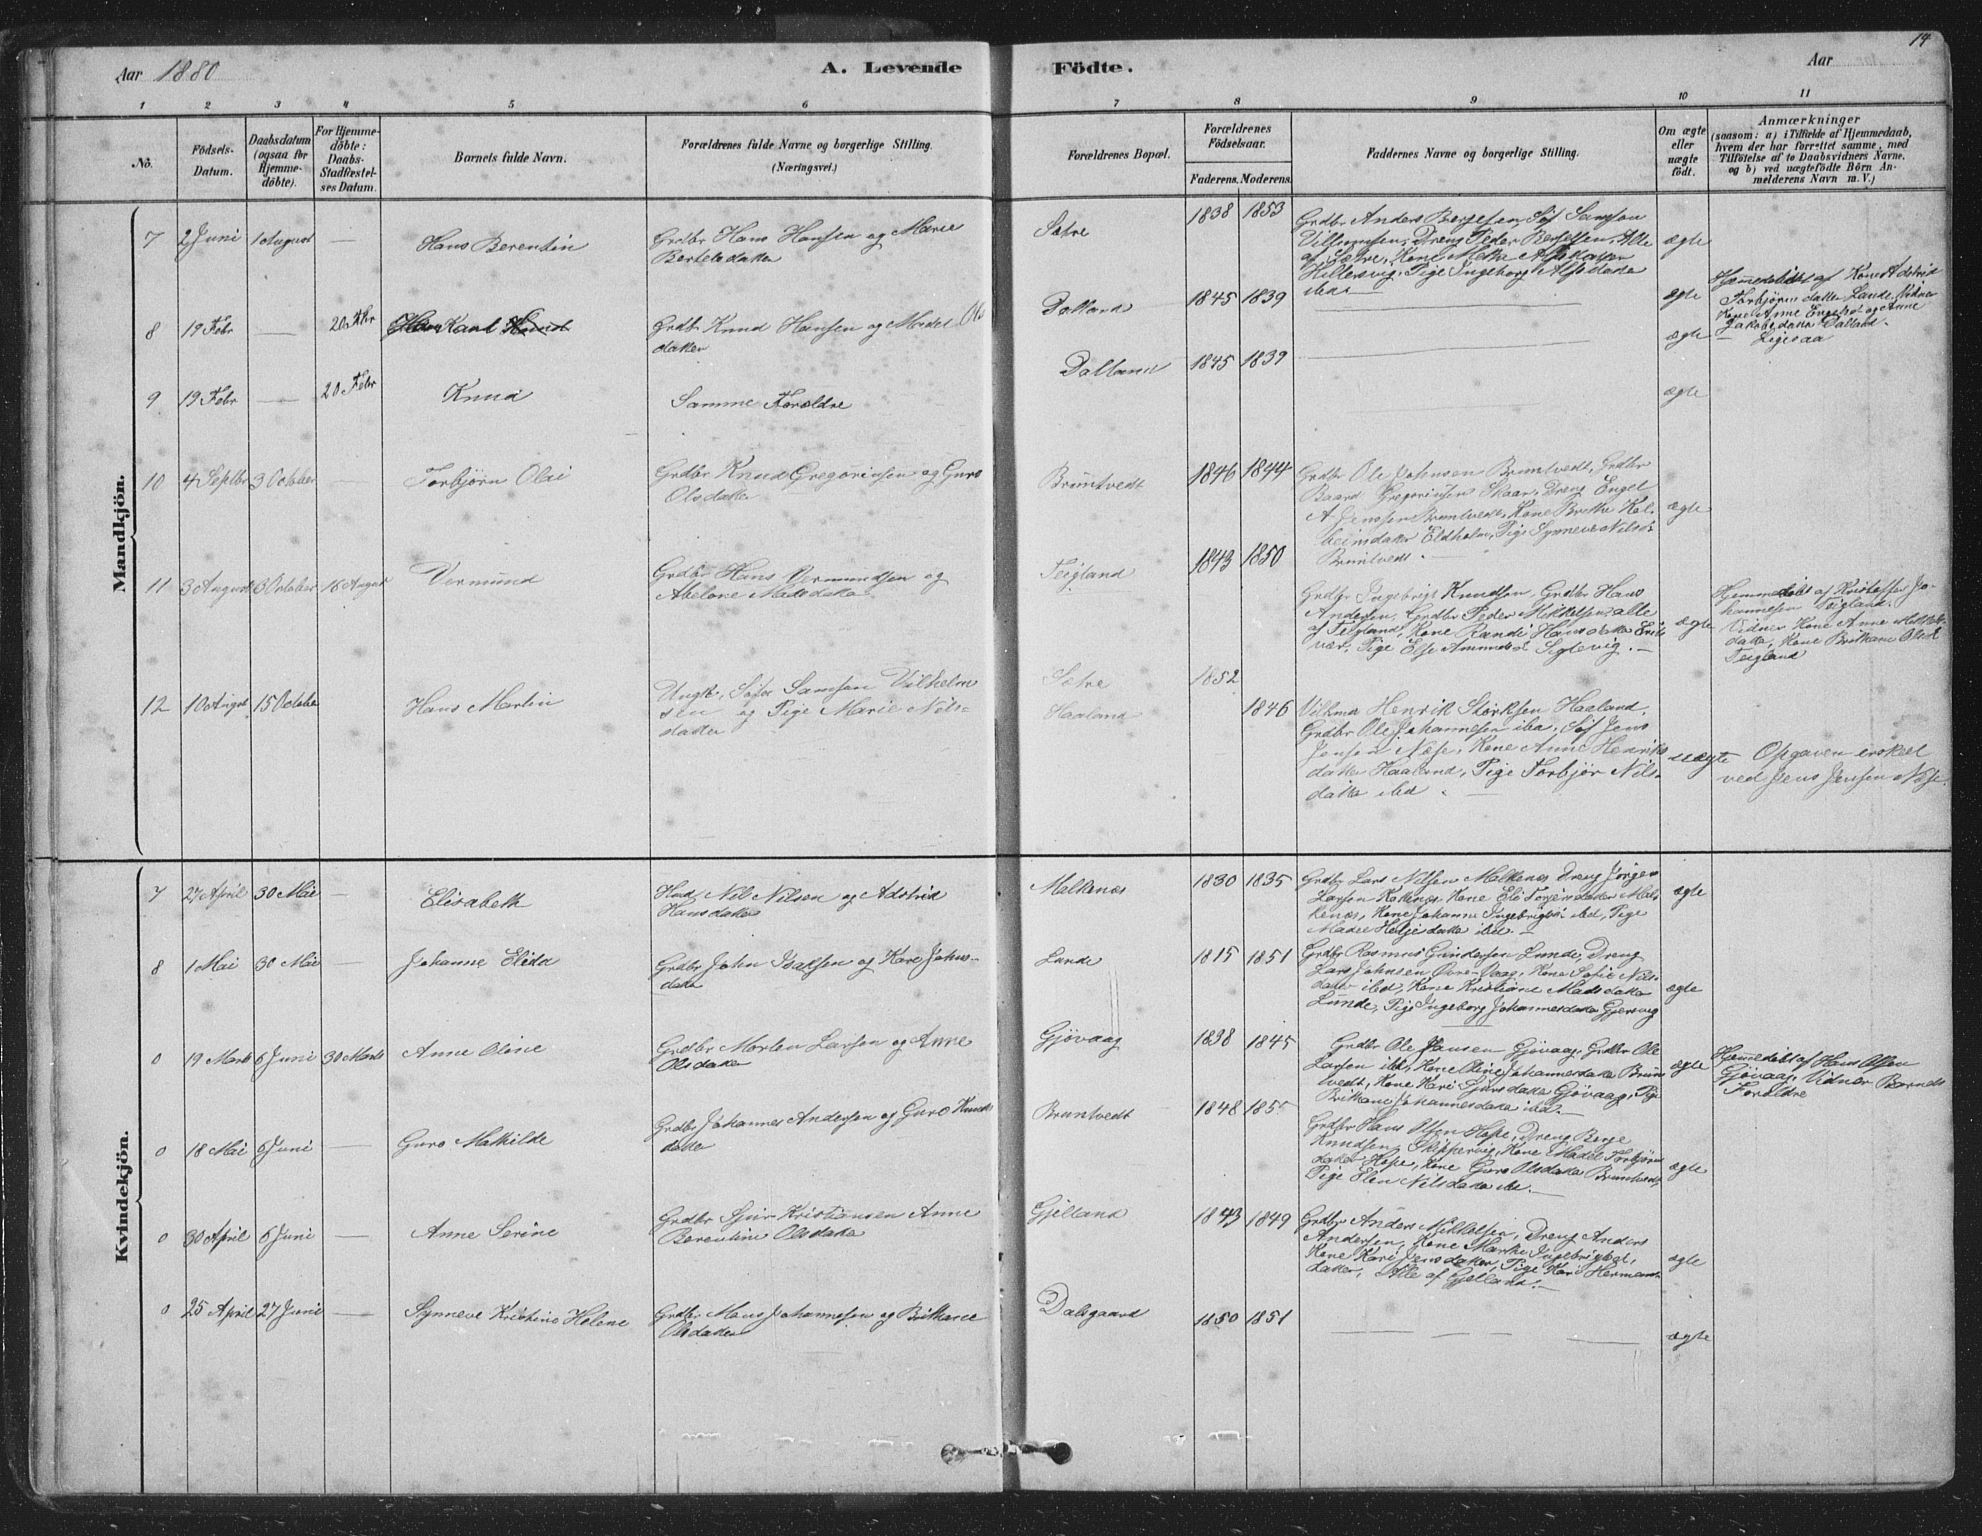 14
Aar 1880
A. Levende
Födte.
Aar
1 2 3 4 5 6 7 8 9 10 11
No.
Födsels-
Datum.
Daabsdatum
(ogsaa for
Hjemme-
döbte).
For Hjemme-
döbte:
Daabs-
Stadfæstel-
ses Datum.
Barnets fulde Navn.
Forældrenes fulde Navne og borgerlige Stilling.
(Næringsvei.)
Forældrenes Bopæl.
Forældrenes
Födselsaar.
Faderens. Moderens.
Faddernes Navne og borgerlige Stilling.
Om ægte
eller
uægte
födt.
Anmærkninger
(saasom: a) i Tilfælde af Hjemmedaab,
hvem der har forrettet samme, med
Tilföielse af to Daabsvidners Navne,
og b) ved uægtefödte Börn An-
melderens Navn m. V.)
Mandkjön.
7 2 Juni 1 August — Hans Berentin
Grdbr Hans Hansen og Marie
Bertelsdatter
Sætre 1838 1853
Grdbr Anders Bergesen, Søf Samson
Vilhmsen, Dreng Peder Bergesen, Alle
af Sætre, Kone Metta
Hillersvig, Pige Ingeborg
ibd —
ægte
8 19 Febr — 20 Febr Karl
Grdb Knud Hansen og Madel Ols
datter
Dalland 1845 1839
ægte
Hjemmedøbt af Kone Adstrid
Torbjörnsdatter Lunde, Vidner
Kone Anne og Anne
Jakobsdatter Dalland.
9 19 Febr — 20 Febr Knud
Samme Foreldre
Dalland 1845 1839
ægte
Ligesaa
ægte
10 4 Septbr 3 October — Torbjørn Olai
Grdbr Knud Gregoriusen og Guro
Olsdatter
Bruntvedt 1846 1844
Grdbr Ole Johnsen Bruntvedt, Grdbr
Baard Gregoriusen Skaar, Dreng Engel
A. Jenssen Bruntvedt, Kone Brithe Kol-
beinsdatter Eldholm, Pige Synneve Nilsd
Bruntvedt —
ægte
11 3 August 3 October 16 August Vermund
Grdbr Hans Vermundsen og
Abelone Madsdatter
Teigland 1843 1850
Grdbr Ingebrigt Knudsen, Grdbr Hans
Andersen, Grdbr Peder Mikkelsen, alle
af Teigland, Kone Randi Hansdatter
vær, Pige Else Siglevig. —
ægte
Hjemmedøbt af Kristoffer Jo-
hannesen Teigland.
Vidner Kone Anne
datter, Kone Brithane Olsd
Teigland
12 10 August 15 October Hans Martin
Ungk, Søfar Samson Vilhelm
sen og Pige Marie Nils-
datter
Sætre 1852
Haaland 1846
Henrik Størksen Haaland,
Grdbr Ole Johannesen ibd, Søf Jens
Jensen Næse, Kone Anne Henriks
datter Haaland, Pige Torbjør Nils-
datter ibd . —
uægte
Opgaven
ved Jens Jensen Næse.
Kvindekjön.
7 27 April 30 Mai — Elisabeth
Nils Nilsen og Adstrid
Hansdatter
Malkenæs 1830 1835
Grdbr Lars Nilsen Malkenes, Dreng Jørgen
Larsen, Kone
Kone Johanne Ingebrigtsd ibd, Pige
ibd. —
ægte
8 1 Mai 30 Mai — Johanne Elida
Grdbr John Isaksen og Kari Johns-
datter
Lunde 1815 1851
Grdbr Rasmus Gundersen Lunde, Dreng
Lars Johnsen Øvre-Vaag, Kone Sofie Nils-
datter ibd, Kone Kristiane Madsdatter
Lunde, Pige Ingeborg Johannesdatter Gjersvig
ægte
0 19 Marts 6 Juni 30 Marts Anne Oline
Grdbr Morten Larsen og Anne
Olsdatter
Gjøvaag 1838 1845
Grdbr Ole Hansen Gjøvaag, Grdbr Ole
Larsen ibd, Kone Oline Johannesdatter Brunt-
vedt, Kone Kari Sjursdatter Gjøvaag, Pige
Brithane Johannesdatter ibd. —
ægte
Hjemmedøbt af Hans Olsen
Gjøvaag, Vidner Barnets
Foreldre
0 18 Mai 6 Juni — Guro Mathilde
Grdbr Johannes Andersen og Guro Knuds
datter
Bruntvedt 1848 185
Grdbr Hans Olsen Hope, Dreng Berge
Knudsen Skippervig, Kone Madel Torbjørns
datter Hope, Kone Guro Olsdatter Bruntvedt,
Pige Elen Nilsdatter ibd. —
ægte
0 30 April 6 Juni — Anne Serine
Grdbr Sjur Kristiansen Anne
Berentine Olsdatter
Gjelland 1843 1849
Grdbr Anders Mikkelsen, Dreng Anders
Andersen, Kone Marthe Ingebrigtsd,
Kone Kari Jensdatter, Pige Kari Hermans
datter, Alle af Gjelland. —
ægte
0 25 April 27 Juni — Synneve Kristine Helene
Grdbr Hans Johannesen og Brithane
Olsdatter
Dalsgaard 1850 1851
ægte